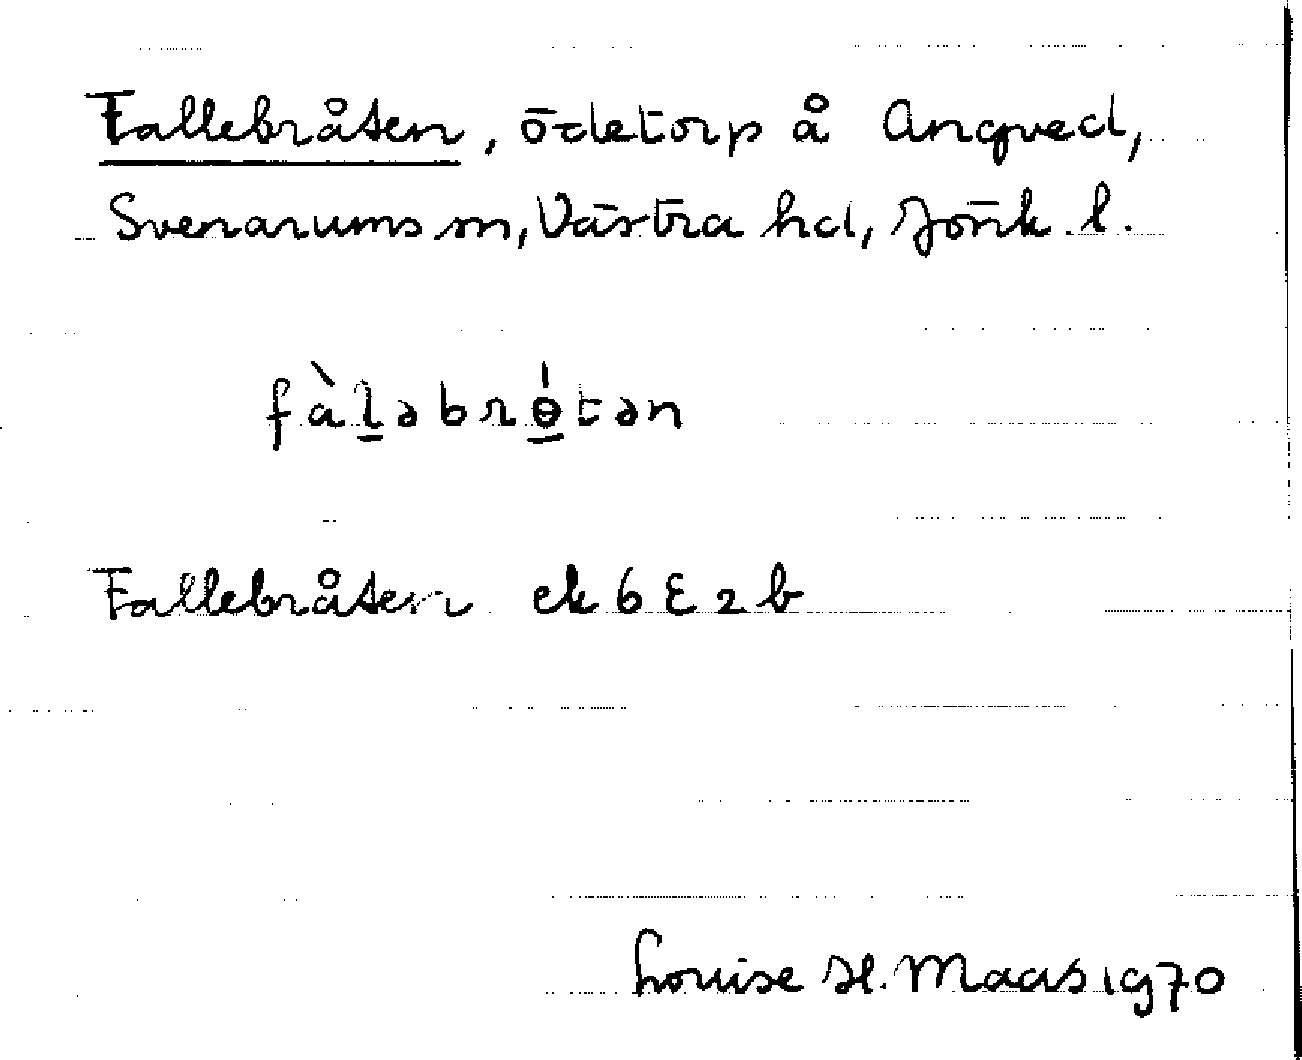 Fallebråten, ödetorp å Angved,
Svenarums sn, Västra hd, Jönk. l.
fàl̲əbrɵ̲́tən
Fallebråten ek 6 E 2 b
Louise H. Maas 1970